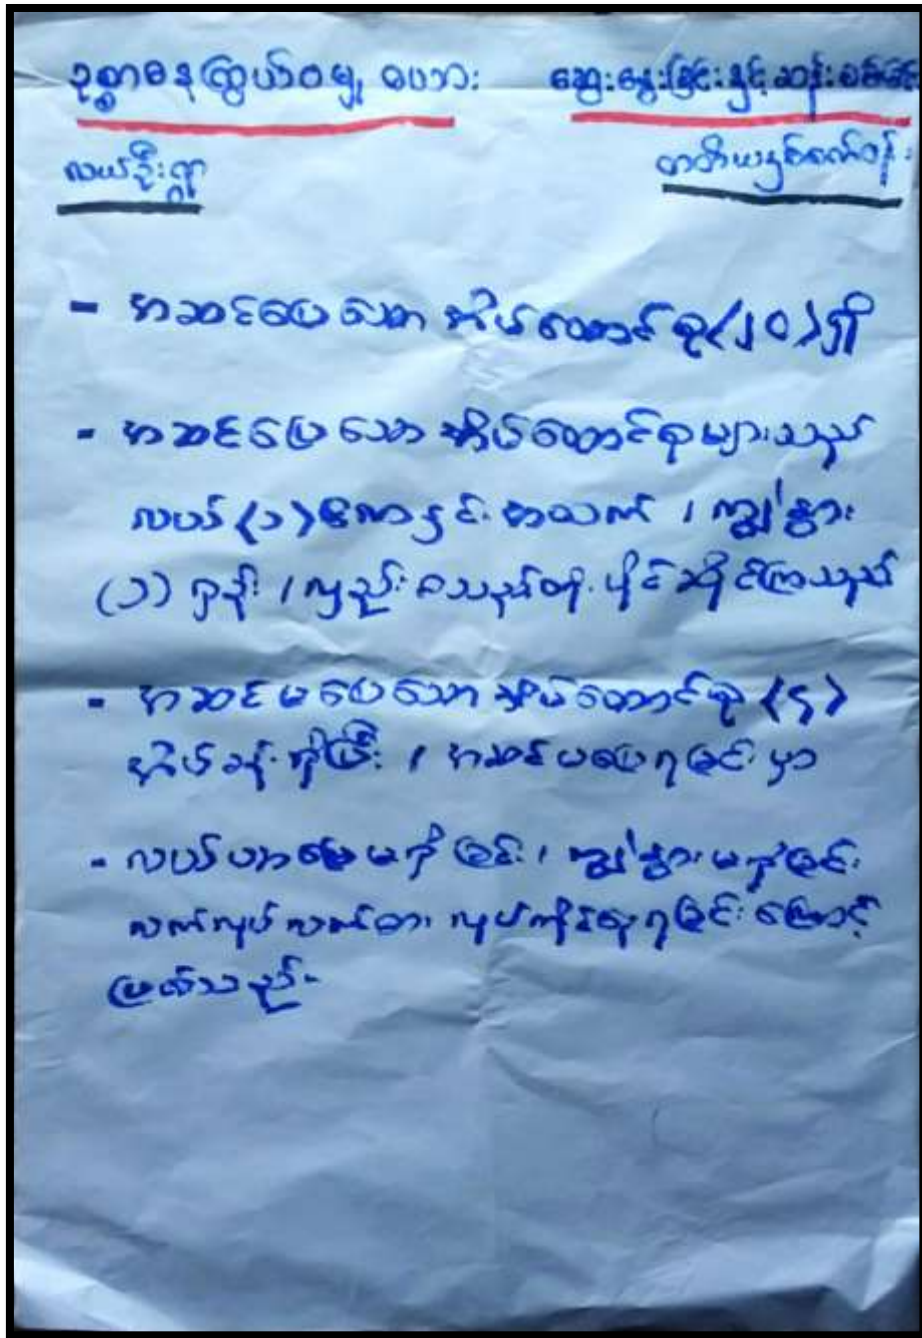 ဥစ္စာဓနကြွယ်ဝမှု ဇယား ဆွေးနွေးခြင်းနှင့် ဆန်းစစ်ခြင်း
လယ်ဦးရွာ တတိယနှစ်ဇက်ဝန်း
- အဆင်ပြေသော အိမ်ထောင်စု (၂၀) ရှိ
- အဆင်ပြေသော အိမ်ထောင်စုများသည်
လယ် (၁) ဧကနှင့်အထက် ၊ ကျွဲ၊ နွား
(၁) ရှဉ်း ၊ လှည်း စသည်တို့ ပိုင်ဆိုင်ကြသည်
- အဆင်မပြေသော အိမ်ထောင်စု (၄)
အိမ်ခန့်ရှိပြီး ၊ အဆင်မပြေရခြင်းမှာ
- လယ်ယာမြေမရှိခြင်း ၊ ကျွဲ၊ နွား မရှိခြင်း
လက်လုပ်လက်စား လုပ်ကိုင်နေရခြင်းကြောင့်
ဖြစ်သည်။